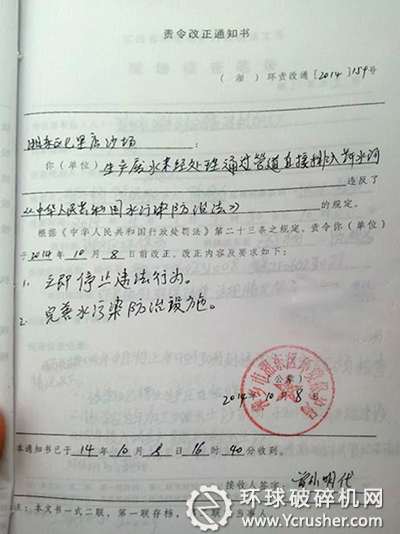 责令改正通知书
（ 湘 ）环责改通［2014］159号
湘东区巴里店沙场：
你（单位）生产废水未经处理通过管道直接排入萍水河
违反了
《中华人民共和国水污染防治法》的规定。
根据《中华人民共和国行政处罚法》第二十三条之规定。责令你（单位）
于2014年10月8日前改正。改正内容及要求如下：
1. 立即停止违法行为。
2. 完善水污染防治设施。
（公章）
2014年10月8日
本通知书已于14年10月8日16时40分收到。
接收人签字：
注：本文书一式二联，第一联存档，二联 当事人
环球破碎机网
www.Ycrusher.com